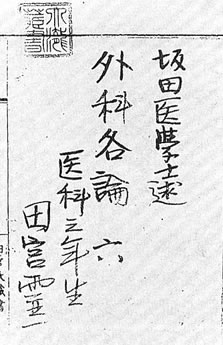 坂田医学士述
外科各論 六
医科三年生
田宮